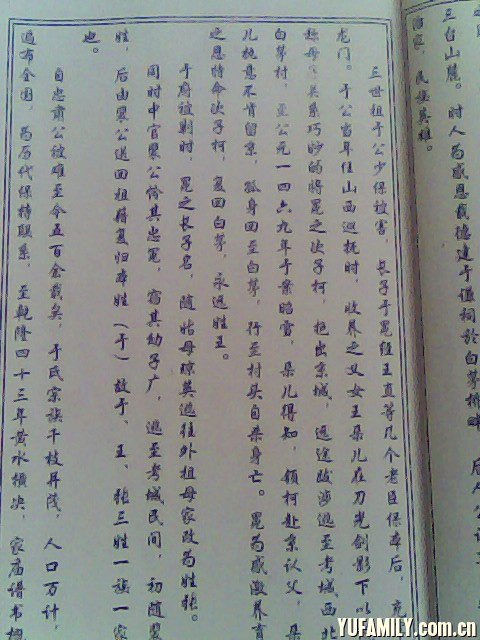 三台山麓。时人为感恩戴德建于谦祠於白茅桥畔
治家，民族英雄。
三世祖于公少保被害，长子于冕经王直等几个老臣保奉后，充
龙门。于公当年任山西巡抚时，收养之义女王朵儿在刀光剑影下以
称母子关系巧妙的将冕之次子柯，抱出京城，远途跋涉逃至考城西北
白茅村，至公元一四六九年于案昭雪，朵儿得知，领柯赴京认父，朵
儿执意不肯留京，孤身回至白茅，行至村头自杀身亡。冕为感激养育
之恩特命次子柯，复回白茅，永远姓王。
于府被剿时，冕之长子名，随姑母琼英逃往外祖母家改为姓张。
同时中官裴公怜其忠冤，窃其幼子广，逃至考城民间，初随裴
姓，后由裴公送回祖籍复归本姓（于）故于、王、张三姓一族一家
也。
自忠肃公被难至今五百余载矣，于氏宗族千枝并茂，人口万计，
遍布全国，为历代保持联系，至乾隆四十三年黄水横决，家庙谱书
YUFAMILY.com.cn